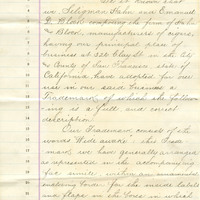 Be it known that
we Seligman Hahn and Emanuel
D. Bloch composing the firm of Hahn
and Bloch manufacturers of cigars,
having our principal place of
business at 326 Clay St in the City
and County of San Francisco State of
California have adopted for our
use in our said business a
Trademark, of which the follow-
ing is a full and correct
description.
Our Trademark consist of the
words Wide awake. This Trade
mark, we have generally arranged
as represented in the accompanying
fac simile, within an ornamental
border. For the inside labels
and flaps on the boxes in which